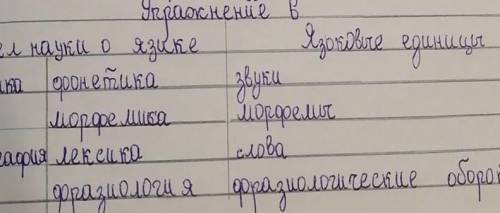 Упражнение 6
ел науки о языке Языковые единицы
ика фонетика звуки
морфемика морфемы
графия лексика слова
фразиология фразиологические оборо